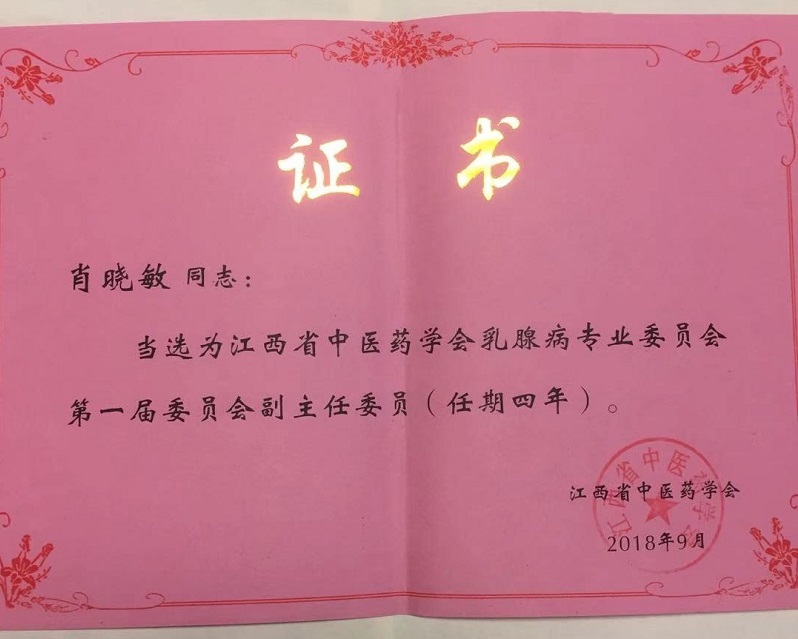 证 书
肖晓敏 同志：
当选为江西省中医药学会乳腺病专业委员会
第一届委员会副主任委员（任期四年）。
江西省中医药学会
2018年9月
江西省中医药学会